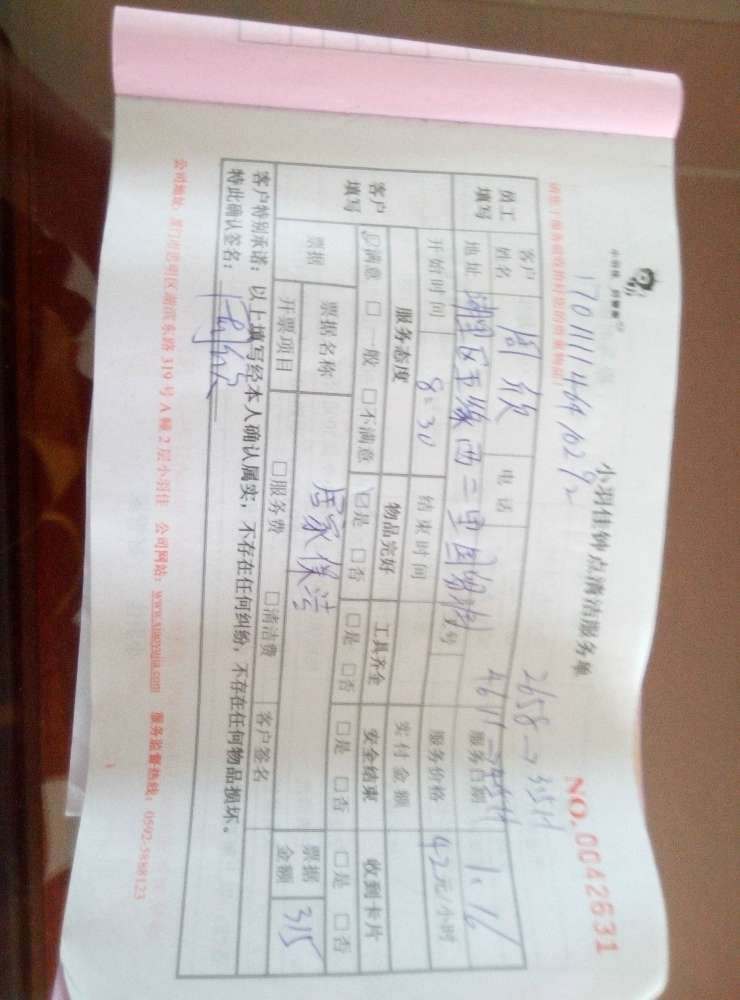 小羽佳钟点清洁服务单
NO.0042631
170111146410292
2658→3.5H
4611→4H
请您于服务前收拾好您的贵重物品!
员工填写
客户姓名 周欣 电话 服务日期 1.16
地址 湖里区 西二里国贸 室号 服务价格 42元/小时
开始时间 8:30 结束时间 实付金额
客户填写
服务态度 物品完好 工具齐全 安全结束 收到卡片
☑满意 □一般 □不满意 ☑是 □否 □是 □否 □是 □否 □是 □否
票据 票据名称 居家保洁 票据金额 315
开票项目 □服务费 □清洁费 客户签名
客户特别承诺:以上填写经本人确认属实,不存在任何纠纷,不存在任何物品损坏。
特此确认签名:
公司地址:厦门市思明区湖滨东路319号A幢2层小羽佳 公司网站:www.xiaoyujia.com 服务监督热线:0592-5888123